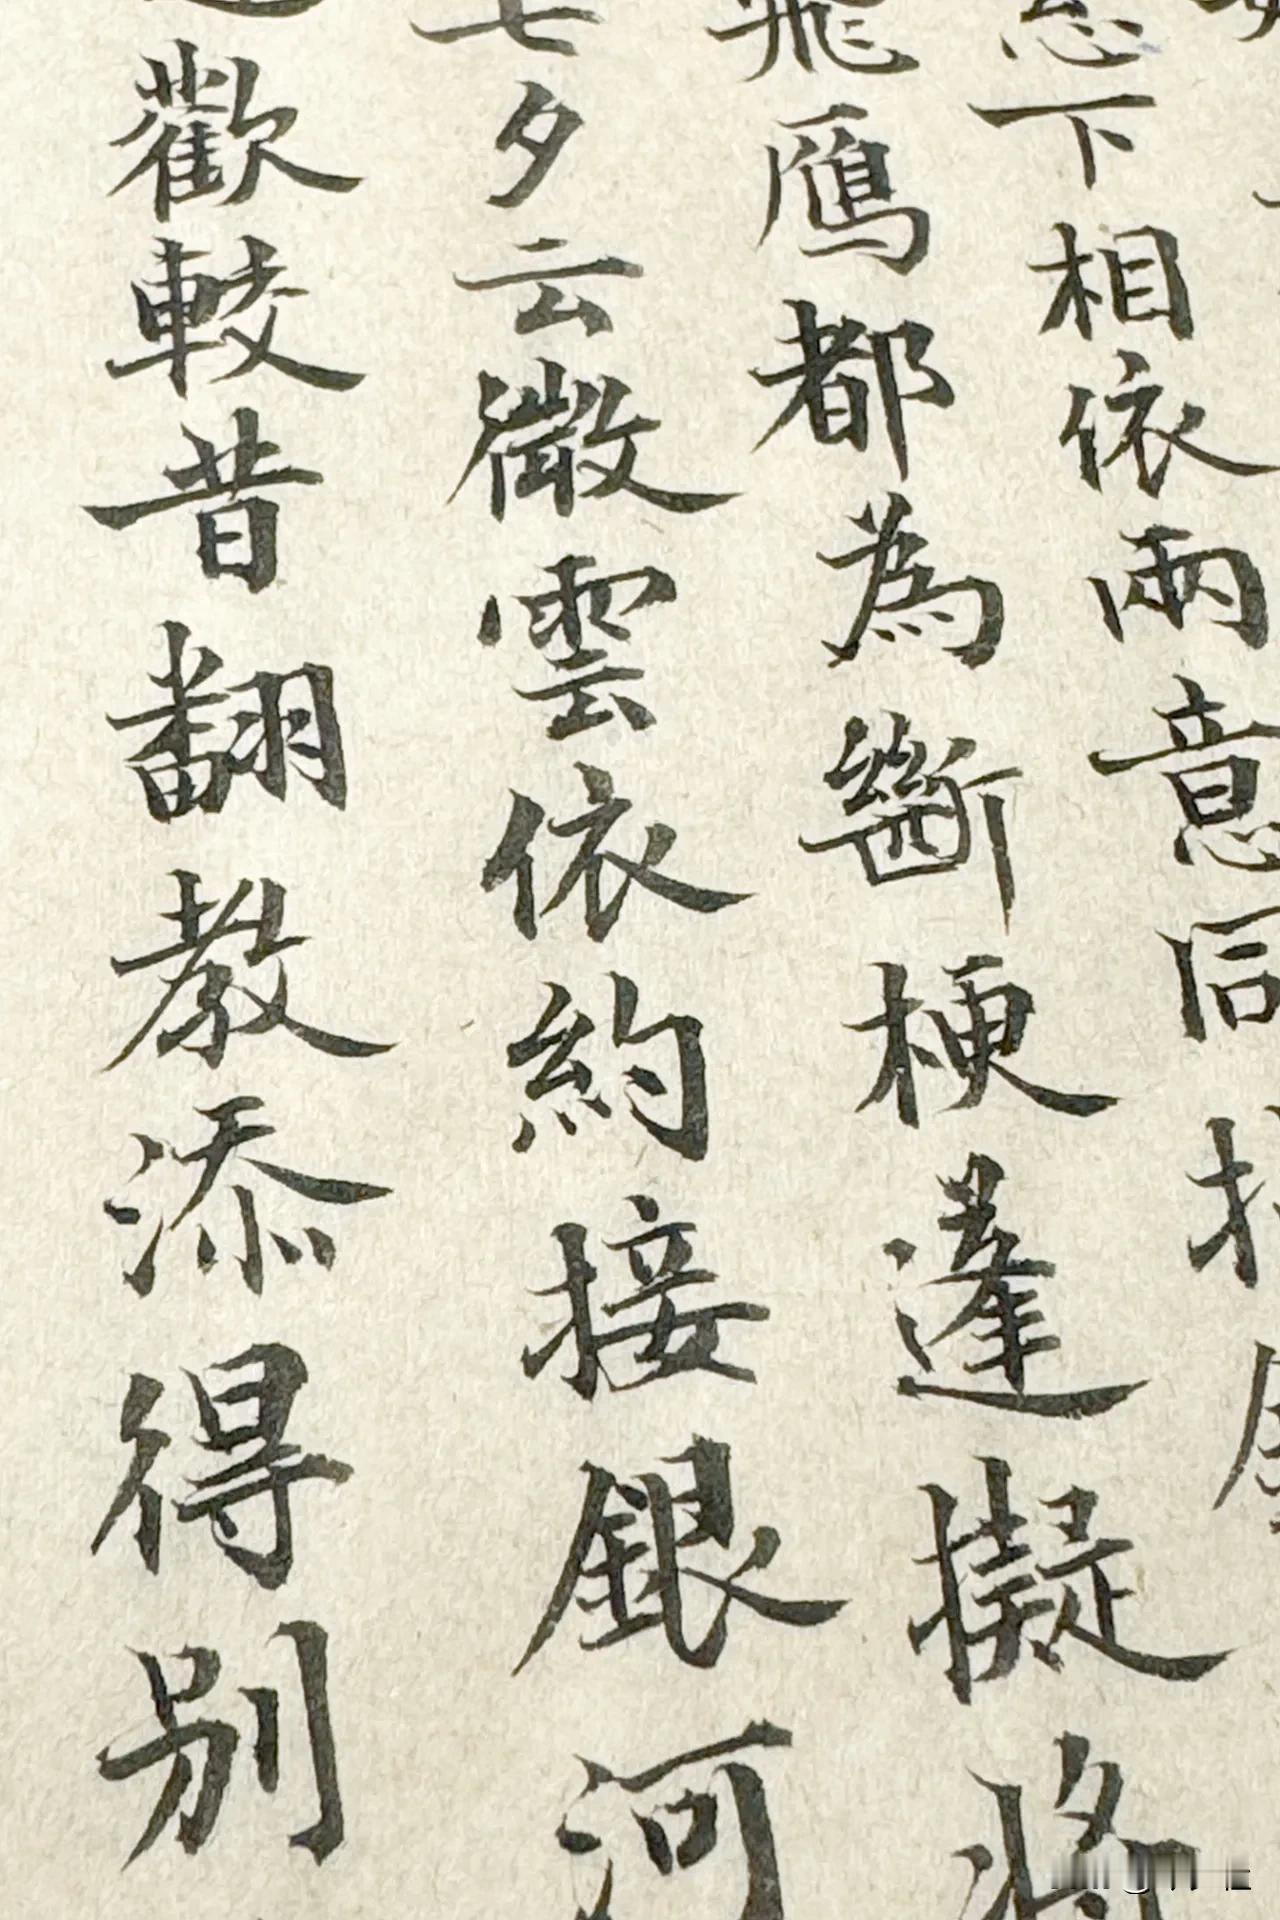 下相依兩意同
飛鴈都為斷梗蓬擬將
七夕云微雲依約接銀河
歡較昔翻教添得别